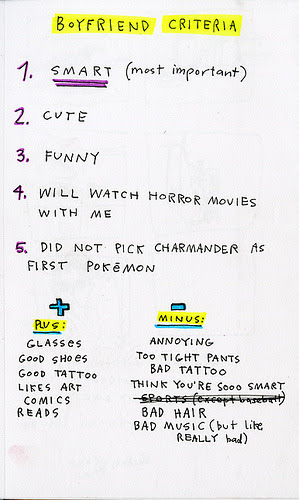 BOYFRIEND CRITERIA
1. SMART (most important)
2. CUTE
3. FUNNY
4. WILL WATCH HORROR MOVIES
WITH ME
5. DID NOT PICK CHARMANDER AS
FIRST POKéMON
+
PLUS:
GLASSES
GOOD SHOES
GOOD TATTOO
LIKES ART
COMICS
READS
-
MINUS:
ANNOYING
TOO TIGHT PANTS
BAD TATTOO
THINK YOU'RE SOOO SMART
SPORTS (except baseball)
BAD HAIR
BAD MUSIC (but like
REALLY bad)